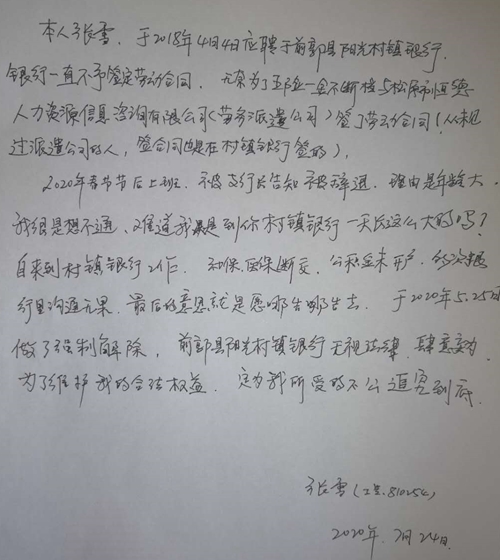 本人张雪，于2018年4月4日应聘于前郭县阳光村镇银行，
银行一直不予签定劳动合同，无奈为了五险一金不断档与松原市恒德
人力资源信息咨询有限公司（劳务派遣公司）签了劳动合同（从未见
过派遣公司的人，签合同也是在村镇银行签的）。
2020年春节节后上班，不被支行长告知被辞退，理由是年龄大，
我很是想不通，难道我是到你村镇银行一天长这么大的吗？
自来到村镇银行工作，社保、医保断交，公积金未开户，多次跟
行里沟通无果，最后的意思就是愿哪告哪告去，于2020年5.25
做了强制解除，前郭县阳光村镇银行无视法律，肆意妄为
为了维护我的合法权益，定为我所受的不公追究到底。
张雪（工号.810254）
2020年.7月24日.